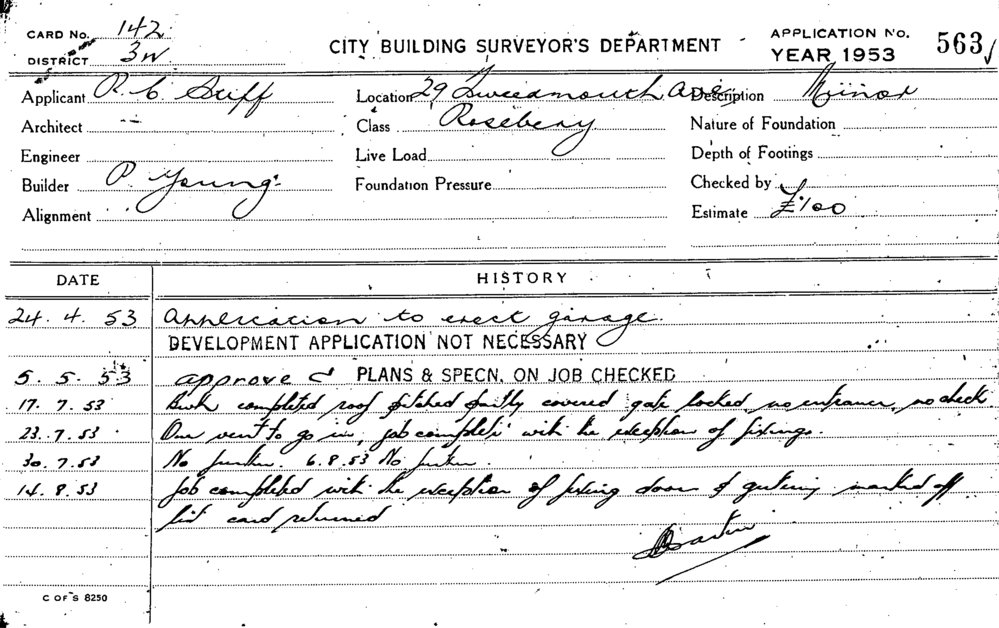 CARD No. 142
DISTRICT 3W
CITY BUILDING SURVEYOR'S DEPARTMENT
APPLICATION No. 563
YEAR 1953
Applicant R. C. Stiff Location 29 Tweedmouth Ave, Description Minor
Architect -- Class Rosebery Nature of Foundation
Engineer Live Load Depth of Footings
Builder P. Young. Foundation Pressure Checked by
Alignment Estimate £100
DATE HISTORY
24. 4. 53 Application to erect garage.
DEVELOPMENT APPLICATION NOT NECESSARY
5. 5. 53 approved PLANS & SPECN. ON JOB CHECKED
17. 7. 53 completed roof pitched partly covered gate locked no entrance, no check.
23. 7. 53 One vent to go in, job complete with the exception of fixings.
30. 7. 53 No further. 6.8.53 No further.
14. 8. 53 Job completed with the exception of fixing door & gutering marked off
list card returned
C OF S 8250